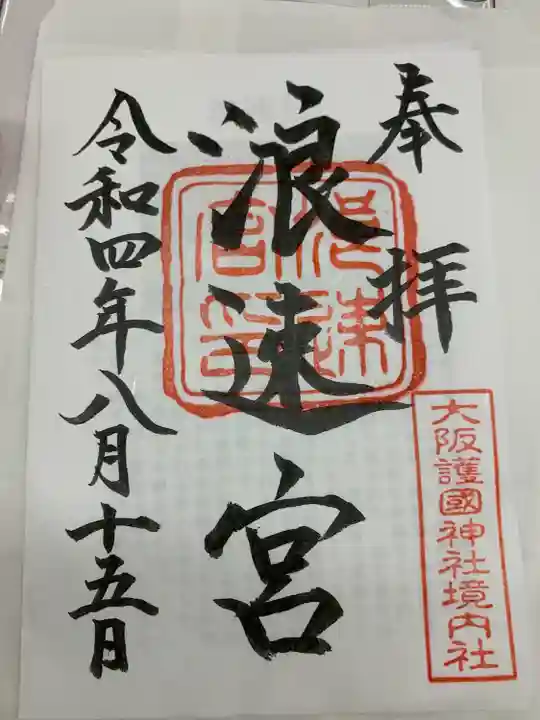 奉拝
大阪護國神社境内社
浪速宮
浪速宮印
令和四年八月十五日